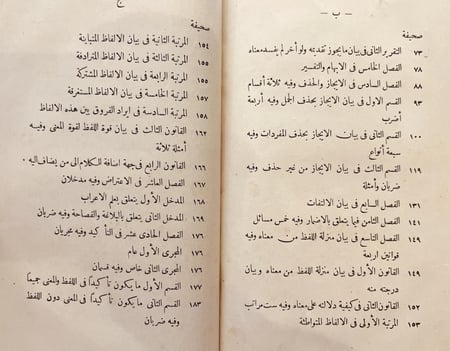 ـ ب ـ
صحيفة
٧٣ التقرير الثانى فى بيان ما يجوز تقديمه ولو أخر لم يفسد معناه
٧٨ الفصل الخامس فى الابهام والتفسير
٨٨ الفصل السادس فى الايجاز والحذف وفيه ثلاثة أقسام
٩٣ القسم الاول فى بيان الايجاز بحذف الجمل وفيه أربعة
أضرب
١٠٠ القسم الثانى فى بيان الايجاز بحذف المفردات وفيه
سبعة أنواع
١١٩ القسم الثالث فى بيان الايجاز من غير حذف وفيه
ضربان وأمثلة
١٣١ الفصل السابع فى بيان الالتفات
١٤١ الفصل الثامن فيما يتعلق بالاضمار وفيه خمس مسائل
١٤٩ الفصل التاسع فى بيان منزلة اللفظ من معناه وفيه
قوانين أربعة
١٤٩ القانون الأول فى بيان منزلة اللفظ من معناه وبيان
درجته منه
١٥٢ القانون الثانى فى كيفية دلالته على معناه وفيه ست مراتب
١٥٣ المرتبة الأولى فى الالفاظ المتواطئة
ج
صحيفة
١٥٤ المرتبة الثانية فى بيان الالفاظ المتباينة
١٥٥ المرتبة الثالثة فى بيان الالفاظ المترادفة
١٥٥ المرتبة الرابعة فى بيان الالفاظ المشتركة
١٥٧ المرتبة الخامسة فى بيان الالفاظ المستغرقة
١٥٨ المرتبة السادسة فى ايراد الفروق بين هذه الالفاظ
١٦٢ القانون الثالث فى بيان قوة اللفظ لقوة المعنى وفيه
أمثلة ثلاثة
١٦٦ القانون الرابع فى جهة اضافة الكلام الى من يضاف اليه
١٦٧ الفصل العاشر فى الاعتراض وفيه مدخلان
١٦٨ المدخل الأول يتعلق بعلم الاعراب
١٦٩ المدخل الثانى يتعلق بالبلاغة والفصاحة وفيه ضربان
١٧٦ الفصل الحادى عشر فى التأكيد وفيه مجريان
١٧٦ المجرى الأول عام
١٧٦ المجرى الثانى خاص وفيه قسمان
١٧٧ القسم الأول ما يكون تأكيدًا فى اللفظ والمعنى جميعًا
١٨٣ القسم الثانى ما يكون تأكيدًا فى المعنى دون اللفظ
وفيه ضربان